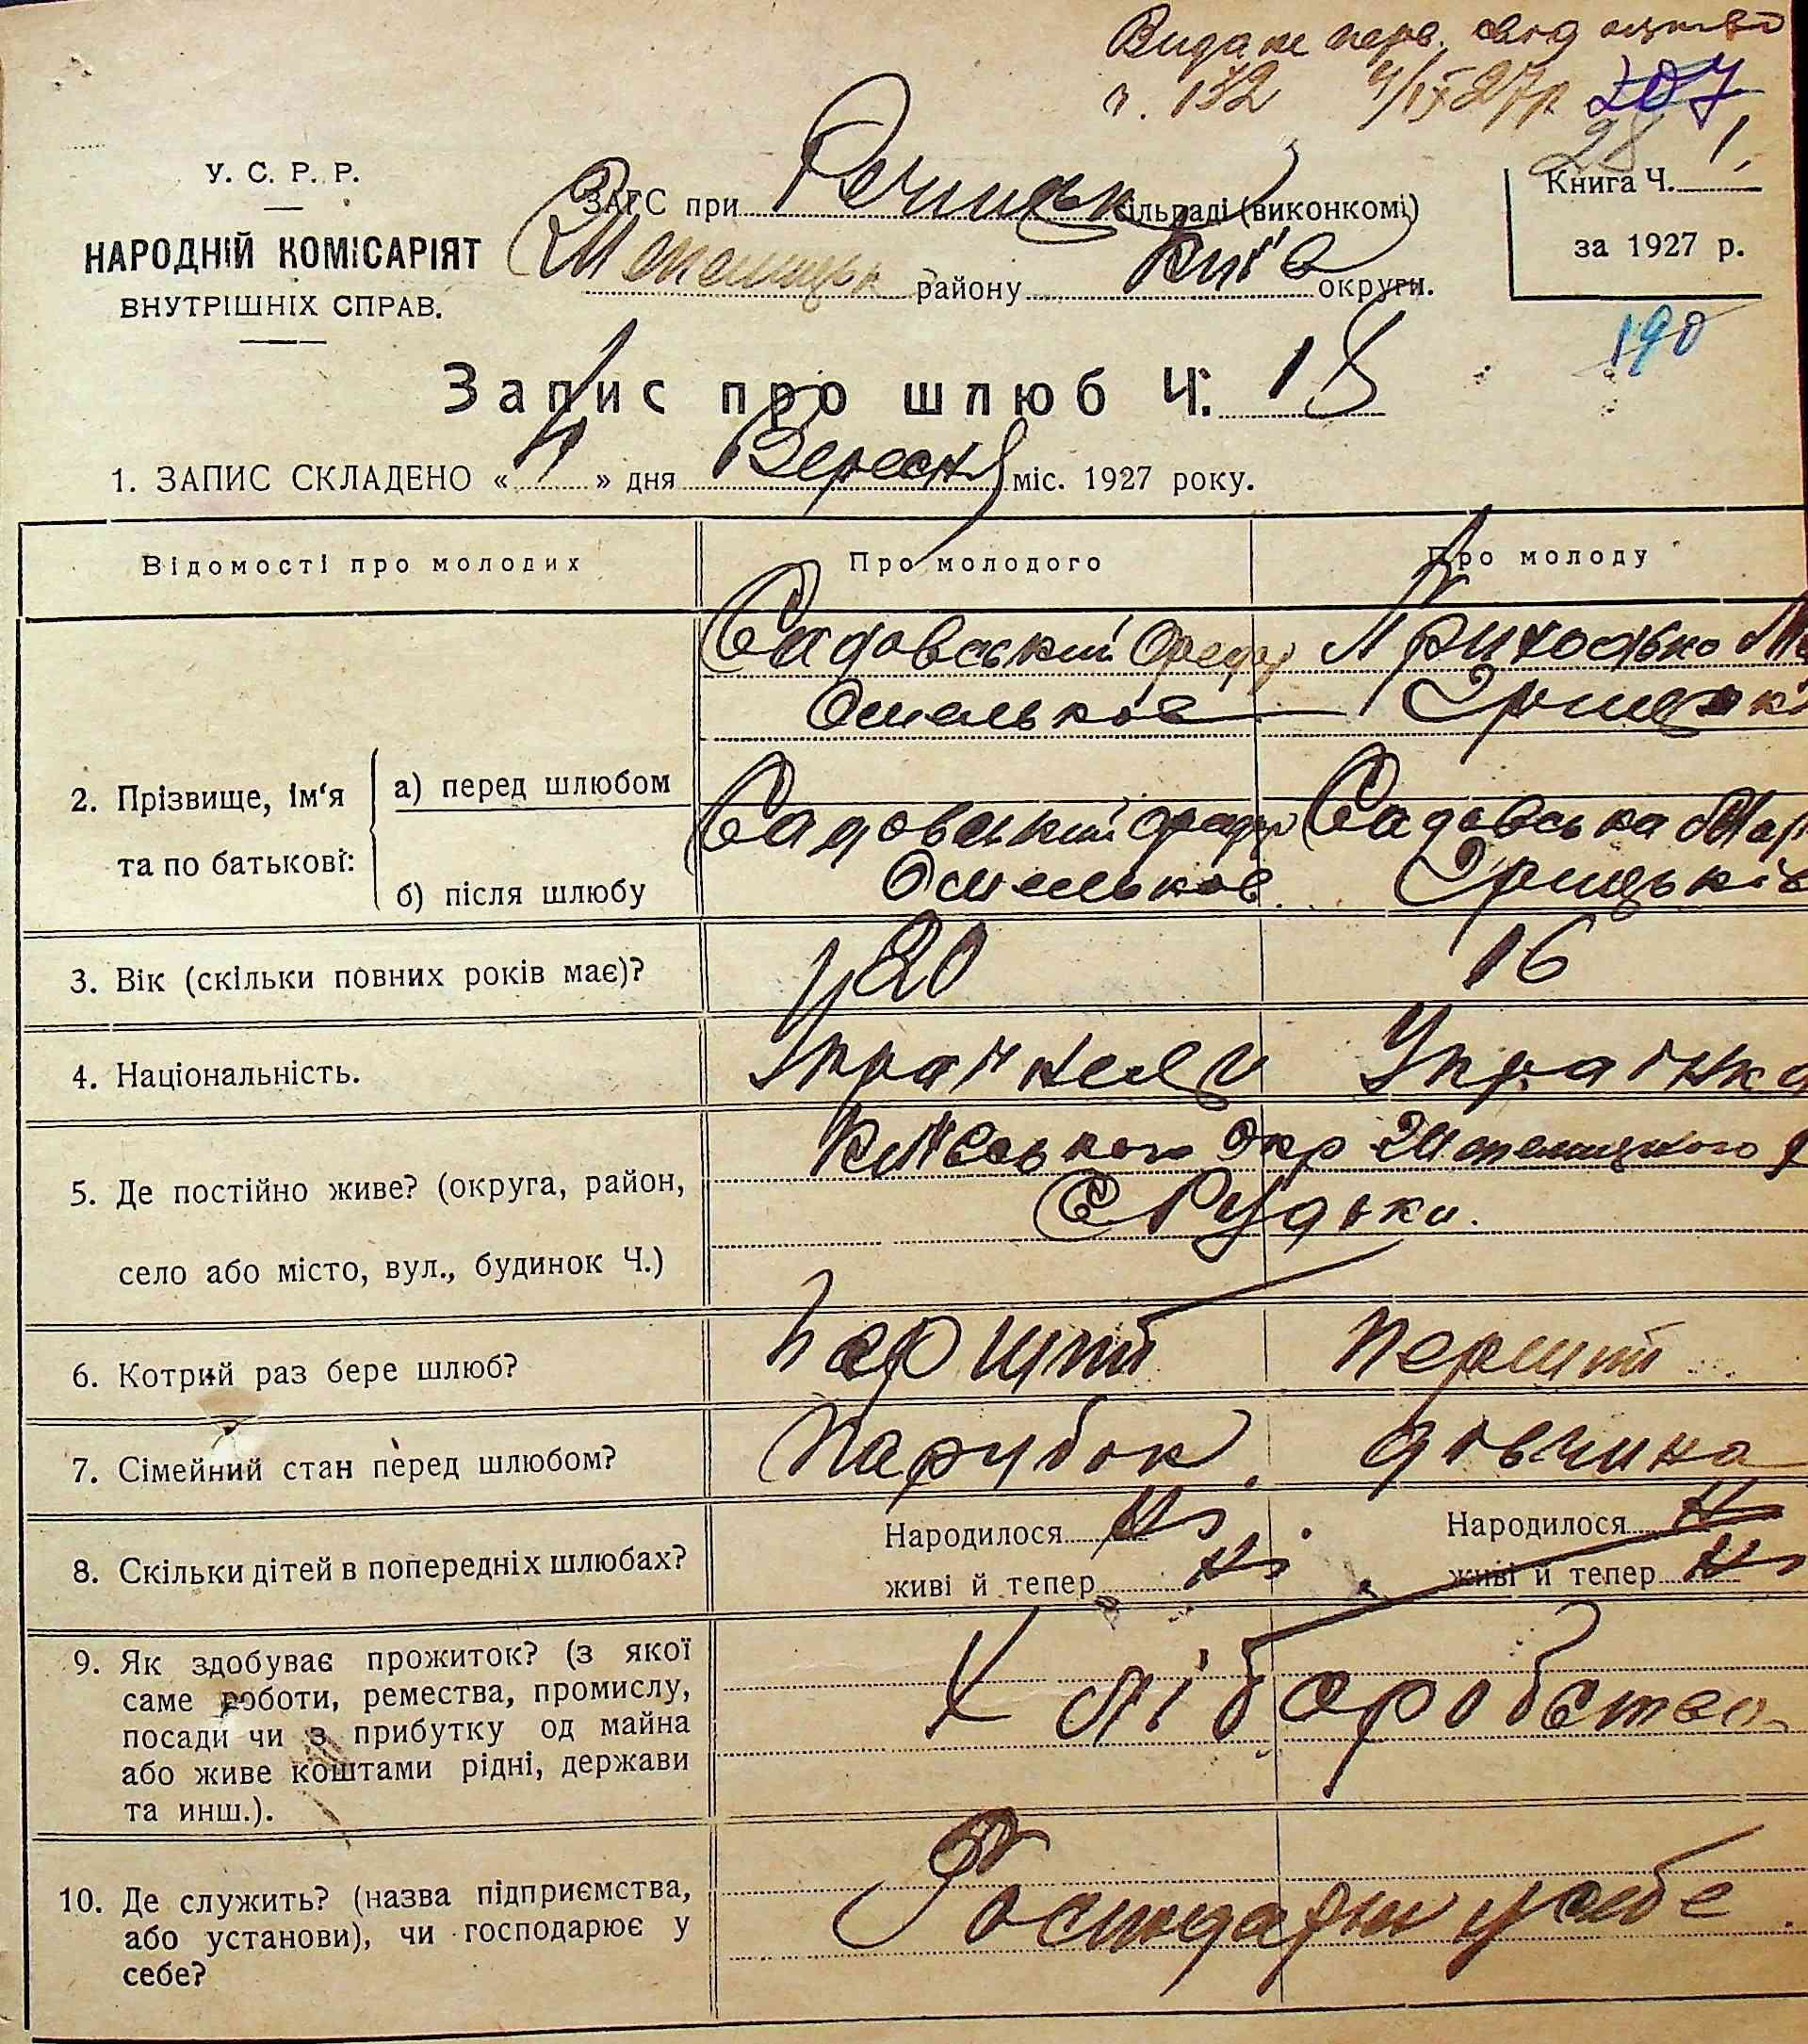 Видане перв. свід
ч. 132 4/IX 27р. 207
28 1,
У. С. Р. Р.
НАРОДНІЙ КОМІСАРІЯТ
ВНУТРІШНІХ СПРАВ.
ЗАГС при сільраді (виконкомі)
району Київ округи.
Книга Ч.
за 1927 р.
190
Запис про шлюб Ч. 18
1. ЗАПИС СКЛАДЕНО « 4 » дня Вересня міс. 1927 року.
Відомості про молодих Про молодого Про молоду
Садовський Приходько
Омельков
2. Прізвище, ім'я та по батькові: а) перед шлюбом
Садовський Садовська
б) після шлюбу Омельков. Грицьків
3. Вік (скільки повних років має)? 20 16
4. Національність. Українець Українка
5. Де постійно живе? (округа, район, Київського Окр
село або місто, вул., будинок Ч.) С Рудьки.
6. Котрий раз бере шлюб? перший перший
7. Сімейний стан перед шлюбом? парубок. дівчина
8. Скільки дітей в попередніх шлюбах? Народилося ні Народилося ні
живі й тепер ні живі й тепер ні
9. Як здобуває прожиток? (з якої
саме роботи, ремества, промислу, Хліборобство
посади чи з прибутку од майна
або живе коштами рідні, держави
та инш.).
10. Де служить? (назва підприємства,
або установи), чи господарює у
себе? у себе